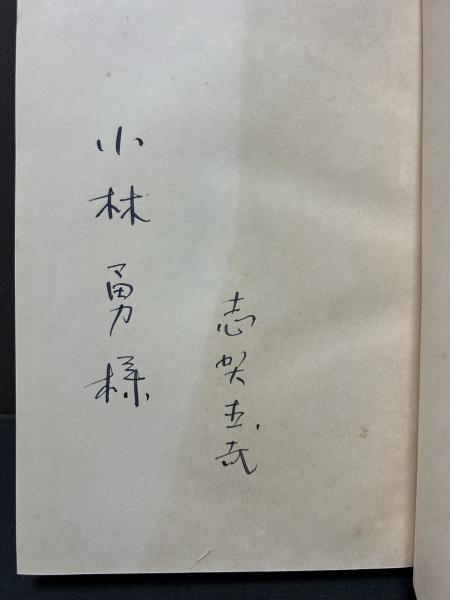 小林勇様
志賀直哉